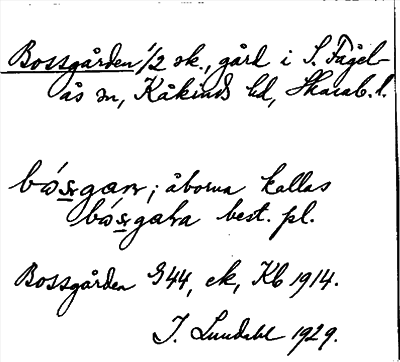 Bossgården 1/2 sk., gård i S. Fågel-
ås sn, Kåkinds hd, Skarab. l.
åborna kallas
best. pl.
Bossgården G44, ek, Kb 1914.
J. Lundahl 1929.